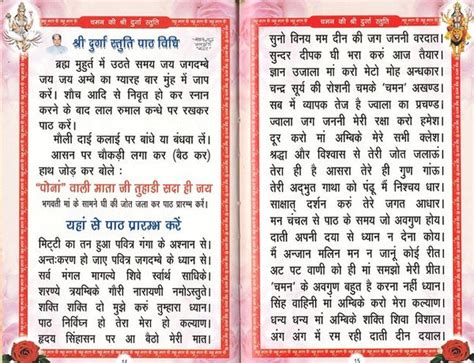 चमन की श्री दुर्गा स्तुति
श्री दुर्गा स्तुति पाठ विधि
ब्रह्म मुहूर्त में उठते समय जय जगदम्बे
जय जय अम्बे का ग्यारह बार मुंह में जाप
करें। शौच आदि से निवृत हो कर स्नान
करने के बाद लाल रुमाल कन्धे पर रखकर
पाठ करें।
मौली दाई कलाई पर बांधे या बंधवा लें।
आसन पर चौकड़ी लगा कर (बैठ कर)
हाथ जोड़ कर बोले :
"पोनां" वाली माता जी तुहाडी सदा ही जय
भगवती मां के सामने घी की जोत जला कर पाठ प्रारम्भ करें।
यहां से पाठ प्रारम्भ करें
मिट्टी का तन हुआ पवित्र गंगा के अश्नान से।
अन्तःकरण हो जाए पवित्र जगदम्बे के ध्यान से।
सर्व मंगल मागल्ये शिवे स्वार्थ साधिके।
शरण्ये त्रयम्बिके गौरी नारायणी नमोऽस्तुते।
शक्ति शक्ति दो मुझे करुं तुम्हारा ध्यान।
पाठ निर्विघ्न हो तेरा मेरा हो कल्याण।
हृदय सिंहासन पर आ बैठो मेरी मात।
14
चमन की श्री दुर्गा स्तुति
सुनो विनय मम दीन की जग जननी वरदात।
सुन्दर दीपक घी भरा करुं आज तैयार।
ज्ञान उजाला मां करो मेटो मोह अन्धकार।
चन्द्र सूर्य की रोशनी चमके 'चमन' अखण्ड।
सब में व्यापक तेज है ज्वाला का प्रचण्ड।
ज्वाला जग जननी मेरी रक्षा करो हमेश।
दूर करो मां अम्बिके मेरे सभी क्लेश।
श्रद्धा और विश्वास से तेरी जोत जलाऊं।
तेरा ही है आसरा तेरे ही गुण गाऊं।
तेरी अद्भुत गाथा को पढूं मैं निश्चय धार।
साक्षात् दर्शन करुं तेरे जगत आधार।
मन चंचल से पाठ के समय जो अवगुण होय।
दाती अपनी दया से ध्यान न देना कोय।
मैं अन्जान मलिन मन न जानूं कोई रीत।
अट पट वाणी को ही मां समझो मेरी प्रीत।
'चमन' के अवगुण बहुत है करना नहीं ध्यान।
सिंह वाहिनी मां अम्बिके करो मेरा कल्याण।
धन्य धन्य मां अम्बिके शक्ति शिवा विशाल।
अंग अंग में रम रही दाती दीन दयाल।
15